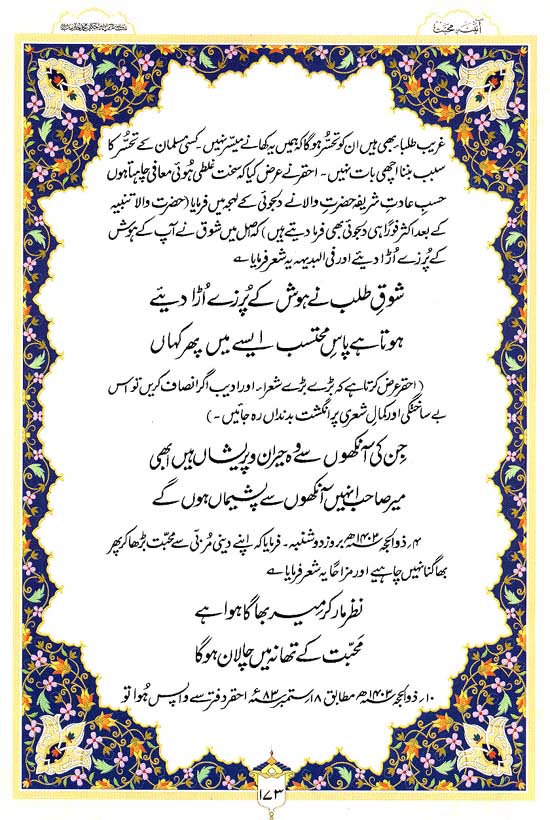 آئینۂ محبت
غریب طلبا بھی ہیں ان کو تحسّر ہو گا کہ ہمیں یہ کھانے میسّر نہیں۔ کسی مسلمان کے تحسّر کا
سبب بننا اچھی بات نہیں۔ احقر نے عرض کیا کہ سخت غلطی ہوئی معافی چاہتا ہوں
حسبِ عادتِ شریفہ حضرت والا نے دلجوئی کے لہجہ میں فرمایا (حضرت والا تنبیہ
کے بعد اکثر فوراً ہی دلجوئی بھی فرما دیتے ہیں) کہ اصل میں شوق نے آپ کے ہوش
کے پُرزے اُڑا دیئے اور فی البدیہہ یہ شعر فرمایا ؎
شوقِ طلب نے ہوش کے پُرزے اُڑا دیئے
ہوتا ہے پاسِ محتسب ایسے میں پھر کہاں
(احقر عرض کرتا ہے کہ بڑے بڑے شعراء اور ادیب اگر انصاف کریں تو اس
بے ساختگی اور کمالِ شعری پر انگشت بدنداں رہ جائیں۔)
جِن کی آنکھوں سے وہ حیران و پریشاں ہیں ابھی
میر صاحب انہیں آنکھوں سے پشیماں ہوں گے
۴؍ ذوالحجہ ۱۴۰۳ھ بروز دوشنبہ۔ فرمایا کہ اپنے دینی مُربّی سے محبّت بڑھا کر پھر
بھاگنا نہیں چاہیے اور مزاحاً یہ شعر فرمایا ؎
نظر مار کر میر بھاگا ہوا ہے
مَحبّت کے تھانہ میں چالان ہو گا
۱۰؍ ذوالحجہ ۱۴۰۳ھ مطابق ۱۸ ستمبر ۸۳ء احقر دفتر سے واپس ہُوا تو
۱۷۳